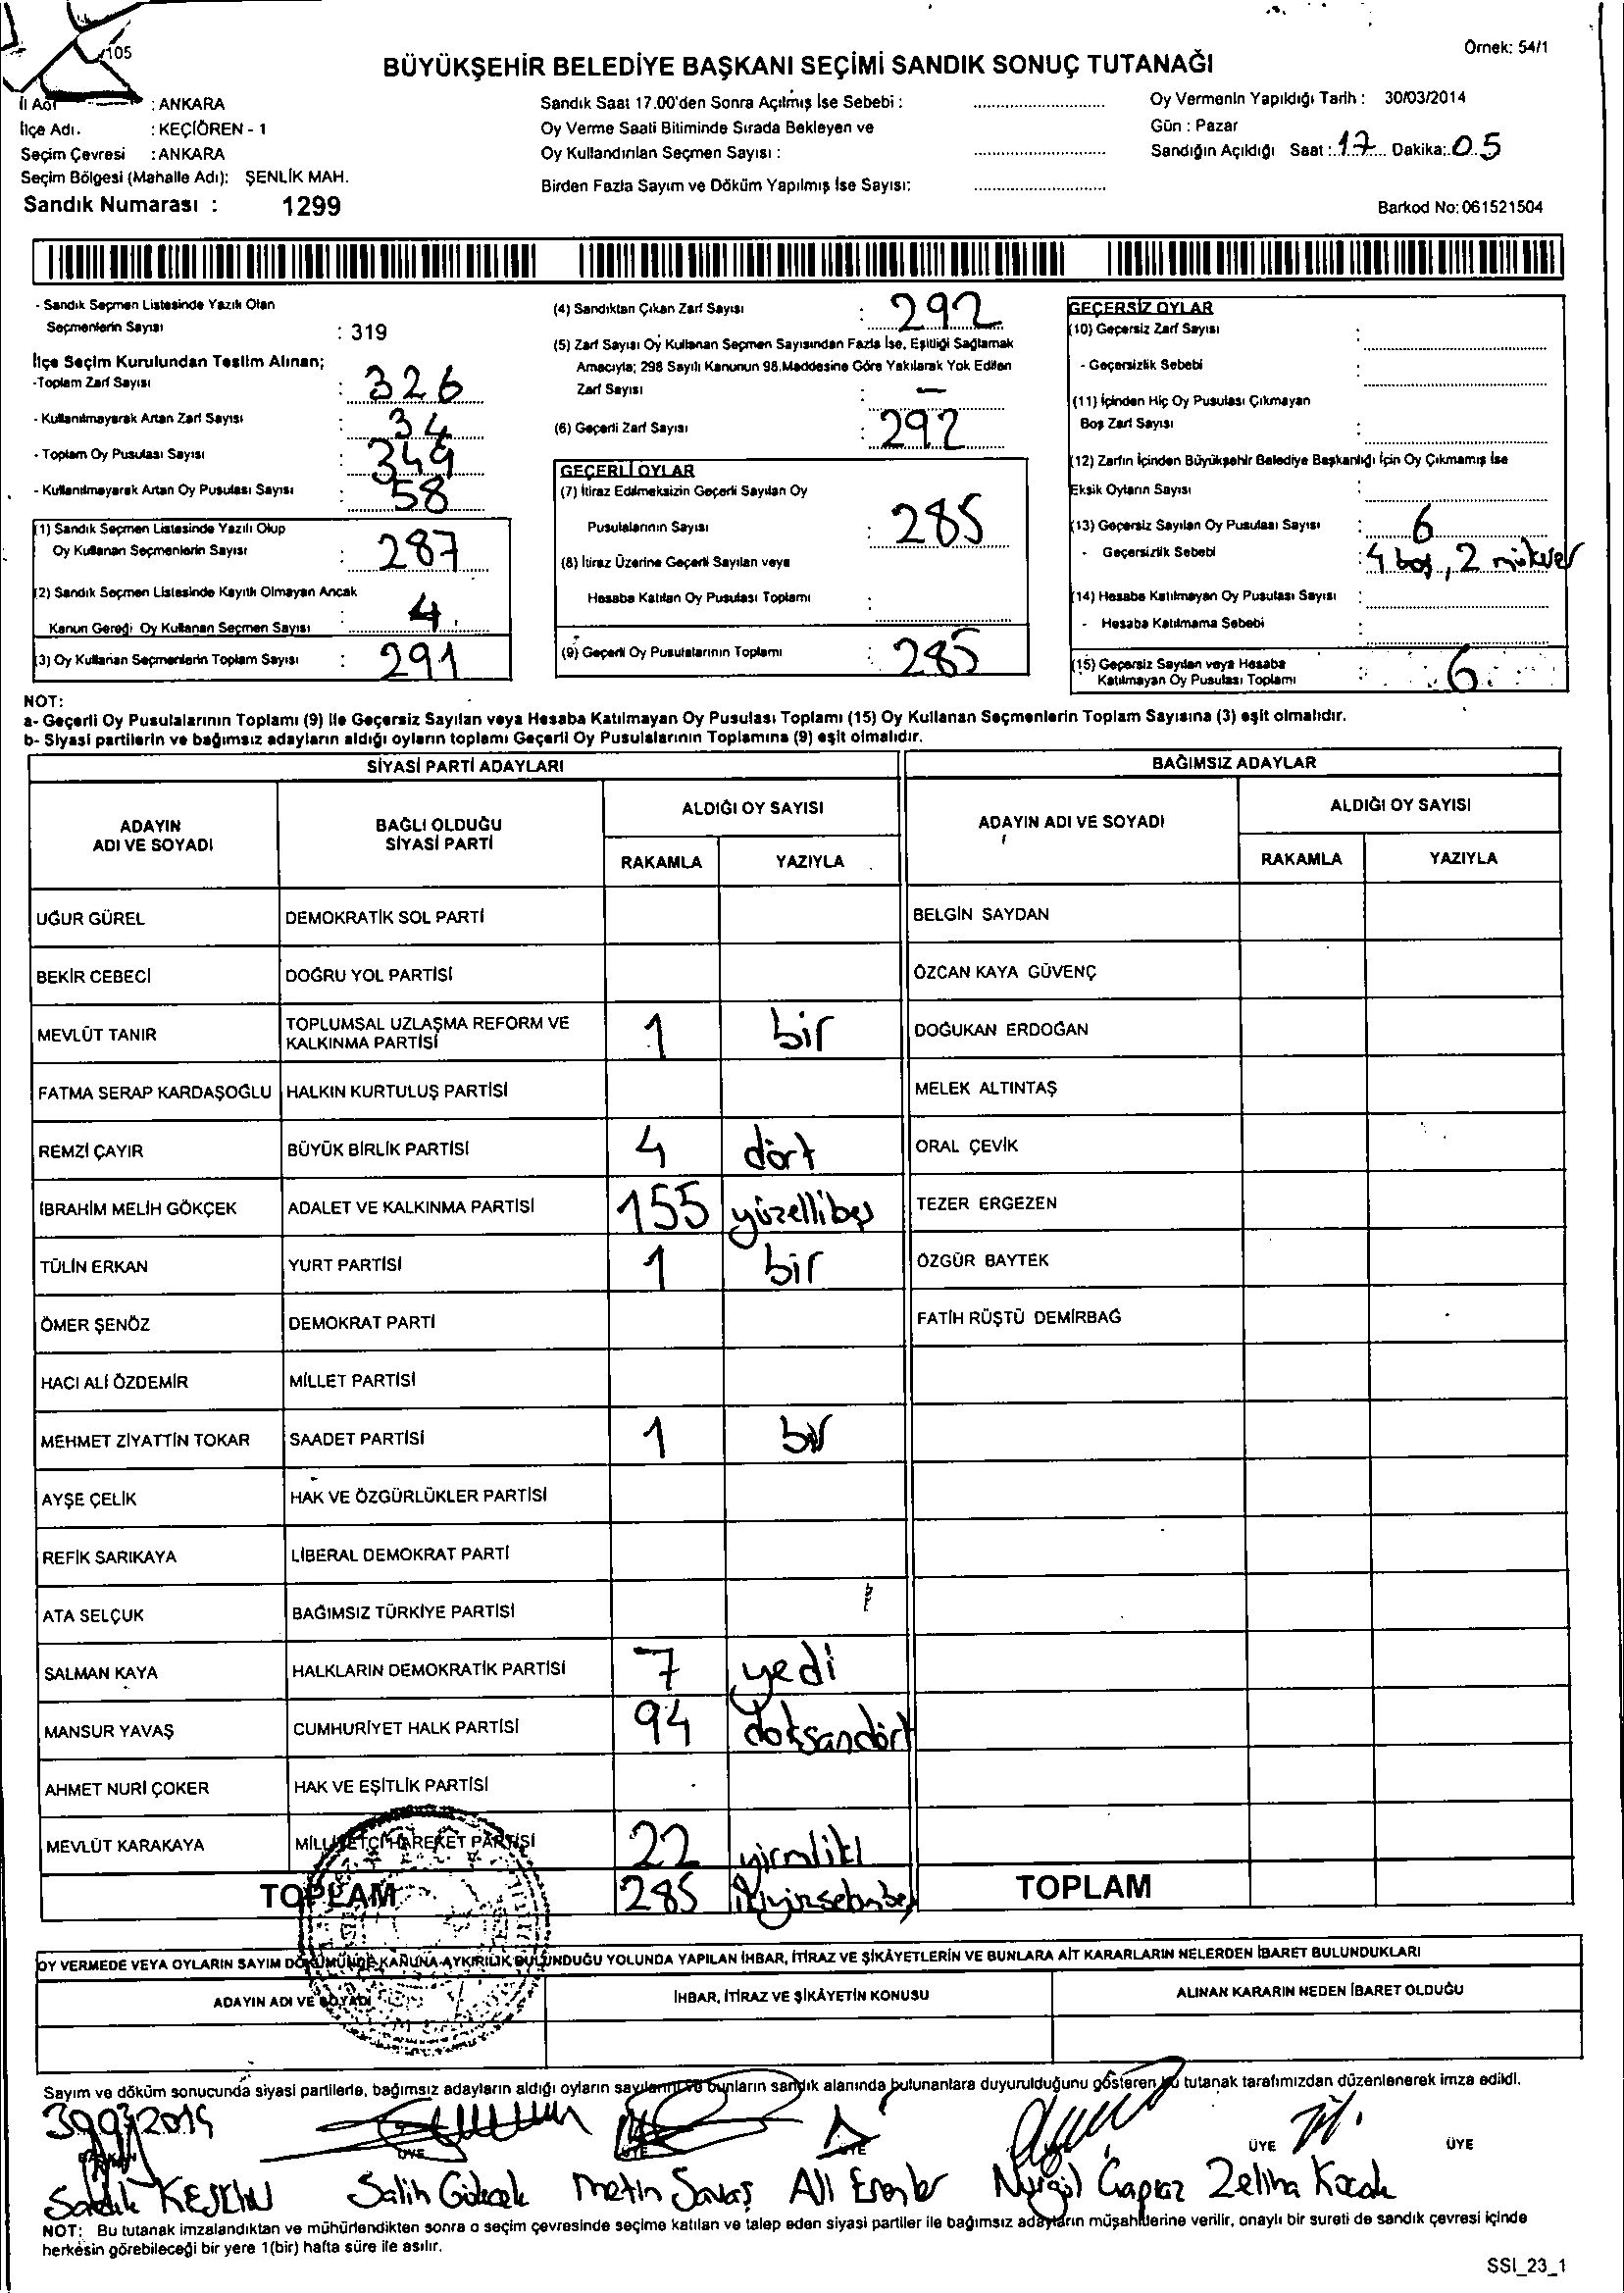 105
Örnek: 54/1
BÜYÜKŞEHİR BELEDİYE BAŞKANI SEÇİMİ SANDIK SONUÇ TUTANAĞI
İl Adı : ANKARA
İlçe Adı. : KEÇİÖREN - 1
Seçim Çevresi : ANKARA
Seçim Bölgesi (Mahalle Adı): ŞENLİK MAH.
Sandık Numarası : 1299
Sandık Saat 17.00'den Sonra Açılmış İse Sebebi :
Oy Verme Saati Bitiminde Sırada Bekleyen ve
Oy Kullandırılan Seçmen Sayısı :
Birden Fazla Sayım ve Döküm Yapılmış İse Sayısı:
Oy Vermenin Yapıldığı Tarih : 30/03/2014
Gün : Pazar
Sandığın Açıldığı Saat : 17 Dakika: 05
Barkod No: 061521504
- Sandık Seçmen Listesinde Yazılı Olan
Seçmenlerin Sayısı : 319
İlçe Seçim Kurulundan Teslim Alınan;
-Toplam Zarf Sayısı : 326
- Kullanılmayarak Artan Zarf Sayısı : 34
- Toplam Oy Pusulası Sayısı : 349
- Kullanılmayarak Artan Oy Pusulası Sayısı : 58
(1) Sandık Seçmen Listesinde Yazılı Olup
Oy Kullanan Seçmenlerin Sayısı : 287
(2) Sandık Seçmen Listesinde Kayıtlı Olmayan Ancak
Kanun Gereği Oy Kullanan Seçmen Sayısı : 4
(3) Oy Kullanan Seçmenlerin Toplam Sayısı : 291
(4) Sandıktan Çıkan Zarf Sayısı : 292
(5) Zarf Sayısı Oy Kullanan Seçmen Sayısından Fazla İse, Eşitliği Sağlamak
Amacıyla; 298 Sayılı Kanunun 98.Maddesine Göre Yakılarak Yok Edilen
Zarf Sayısı : -
(6) Geçerli Zarf Sayısı : 292
GEÇERLİ OYLAR
(7) İtiraz Edilmeksizin Geçerli Sayılan Oy
Pusulalarının Sayısı : 285
(8) İtiraz Üzerine Geçerli Sayılan veya
Hesaba Katılan Oy Pusulası Toplamı :
(9) Geçerli Oy Pusulalarının Toplamı : 285
GEÇERSİZ OYLAR
(10) Geçersiz Zarf Sayısı :
- Geçersizlik Sebebi :
(11) İçinden Hiç Oy Pusulası Çıkmayan
Boş Zarf Sayısı :
(12) Zarfın İçinden Büyükşehir Belediye Başkanlığı İçin Oy Çıkmamış İse
Eksik Oyların Sayısı :
(13) Geçersiz Sayılan Oy Pusulası Sayısı : 6
- Geçersizlik Sebebi : 4 boş, 2
(14) Hesaba Katılmayan Oy Pusulası Sayısı :
- Hesaba Katılmama Sebebi :
(15) Geçersiz Sayılan veya Hesaba
Katılmayan Oy Pusulası Toplamı : 6
NOT:
a- Geçerli Oy Pusulalarının Toplamı (9) ile Geçersiz Sayılan veya Hesaba Katılmayan Oy Pusulası Toplamı (15) Oy Kullanan Seçmenlerin Toplam Sayısına (3) eşit olmalıdır.
b- Siyasi partilerin ve bağımsız adayların aldığı oyların toplamı Geçerli Oy Pusulalarının Toplamına (9) eşit olmalıdır.
SİYASİ PARTİ ADAYLARI BAĞIMSIZ ADAYLAR
ADAYIN ADI VE SOYADI BAĞLI OLDUĞU SİYASİ PARTİ ALDIĞI OY SAYISI ADAYIN ADI VE SOYADI ALDIĞI OY SAYISI
RAKAMLA YAZIYLA RAKAMLA YAZIYLA
UĞUR GÜREL DEMOKRATİK SOL PARTİ BELGİN SAYDAN
BEKİR CEBECİ DOĞRU YOL PARTİSİ ÖZCAN KAYA GÜVENÇ
MEVLÜT TANIR TOPLUMSAL UZLAŞMA REFORM VE KALKINMA PARTİSİ 1 bir DOĞUKAN ERDOĞAN
FATMA SERAP KARDAŞOĞLU HALKIN KURTULUŞ PARTİSİ MELEK ALTINTAŞ
REMZİ ÇAYIR BÜYÜK BİRLİK PARTİSİ 4 dört ORAL ÇEVİK
İBRAHİM MELİH GÖKÇEK ADALET VE KALKINMA PARTİSİ 155 yüzellibeş TEZER ERGEZEN
TÜLİN ERKAN YURT PARTİSİ 1 bir ÖZGÜR BAYTEK
ÖMER ŞENÖZ DEMOKRAT PARTİ FATİH RÜŞTÜ DEMİRBAĞ
HACI ALİ ÖZDEMİR MİLLET PARTİSİ
MEHMET ZİYATTİN TOKAR SAADET PARTİSİ 1 bir
AYŞE ÇELİK HAK VE ÖZGÜRLÜKLER PARTİSİ
REFİK SARIKAYA LİBERAL DEMOKRAT PARTİ
ATA SELÇUK BAĞIMSIZ TÜRKİYE PARTİSİ
SALMAN KAYA HALKLARIN DEMOKRATİK PARTİSİ 7 yedi
MANSUR YAVAŞ CUMHURİYET HALK PARTİSİ 94 doksandört
AHMET NURİ ÇOKER HAK VE EŞİTLİK PARTİSİ
MEVLÜT KARAKAYA MİLLİYETÇİ HAREKET PARTİSİ 22 yirmiiki
TOPLAM 285 ikiyüzseksenbeş TOPLAM
OY VERMEDE VEYA OYLARIN SAYIM DÖKÜMÜNDE KANUNA AYKIRILIK BULUNDUĞU YOLUNDA YAPILAN İHBAR, İTİRAZ VE ŞİKÂYETLERİN VE BUNLARA AİT KARARLARIN NELERDEN İBARET BULUNDUKLARI
ADAYIN ADI VE SOYADI İHBAR, İTİRAZ VE ŞİKÂYETİN KONUSU ALINAN KARARIN NEDEN İBARET OLDUĞU
Sayım ve döküm sonucunda siyasi partilerle, bağımsız adayların aldığı oyların sayılarını ve bunların sandık alanında bulunanlara duyurulduğunu gösteren bu tutanak tarafımızdan düzenlenerek imza edildi.
BAŞKAN ÜYE ÜYE ÜYE ÜYE ÜYE
Sadık KESKİN Salih Metin Savaş Ali Nurgül Çapraz Zeliha
NOT: Bu tutanak imzalandıktan ve mühürlendikten sonra o seçim çevresinde seçime katılan ve talep eden siyasi partiler ile bağımsız adayların müşahitlerine verilir, onaylı bir sureti de sandık çevresi içinde
herkesin görebileceği bir yere 1(bir) hafta süre ile asılır.
SSI_23_1